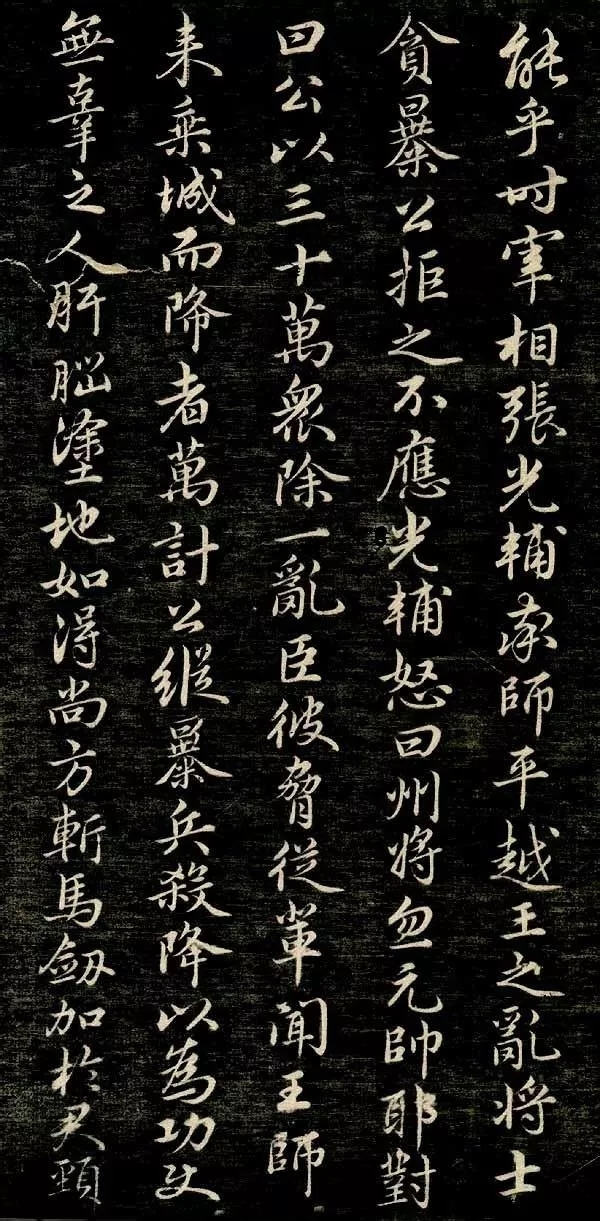 能乎时宰相張光輔南師平越王之亂将士
貪暴公拒之不應光輔怒曰州将忽元帥耶對
曰公以三十萬衆除一亂臣彼脅従軰聞王師
来乗城而降者萬計公縱暴兵殺降以為功使
無辜之人肝腦塗地如得尚方斬馬劔加於君頸